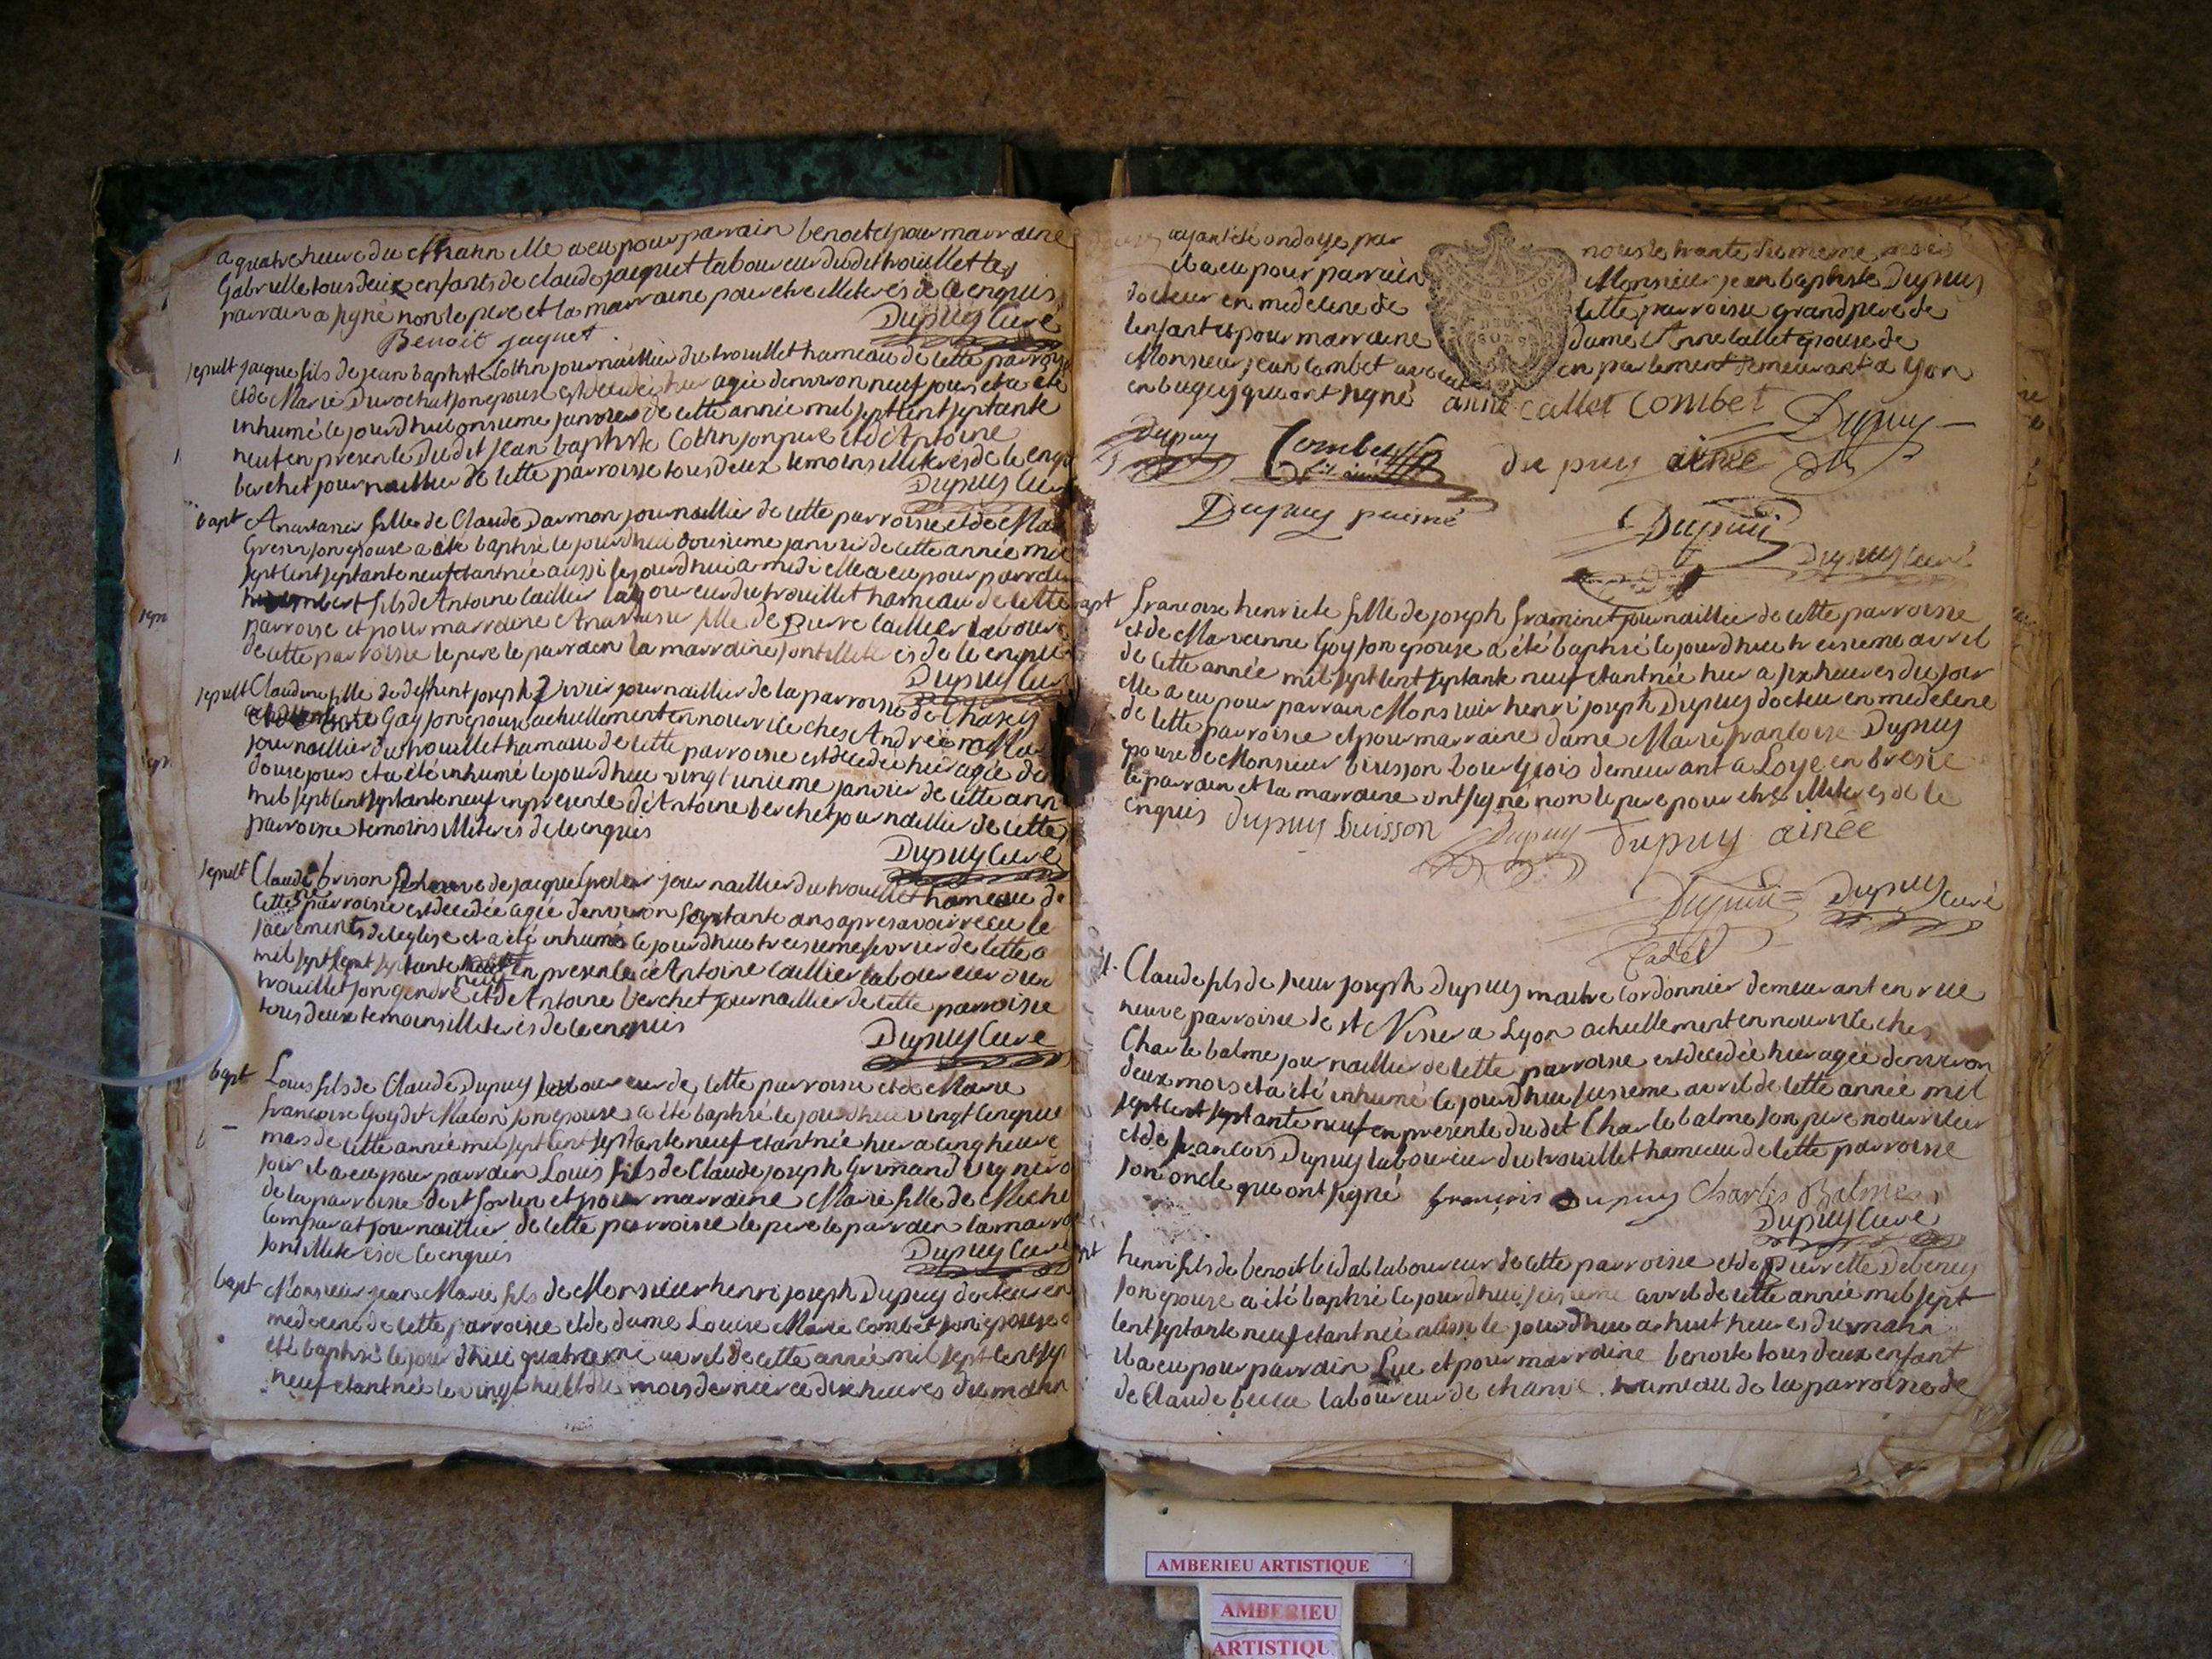 a quatre heure du matin elle a eu pour parrain benoit et pour marraine
Gabrielle tous deux enfants de claude jacquet laboureur du dit trouillet le
parrain a signé non le pere et la marraine pour etre illiterés de ce enquis
Benoit jaquet Dupuy curé
sepult jacque fils de jean baptiste cottin journaillier du trouillet hameau de cette parroisse
et de Marie Durochat son epouse est decedé hier agée denviron neuf jours et a été
inhumé ce jourdhui onsieme janvier de cette année mil sept cent septante
neuf en presence du dit jean baptiste Cottin son pere et de Antoine
berchet journaillier de cette parroisse tous deux temoins illiterés de ce enquis
Dupuy curé
bapt Anastasie fille de Claude Darmon journaillier de cette parroisse et de
Gresin son epouse a été baptisé ce jourdhui dousieme janvier de cette année mil
sept cent septante neuf etant née aussi ce jourdhui a midi elle a eu pour parrain
humbert fils de Antoine caillier laboureur du trouillet hameau de cette
parroisse et pour marraine Anastasie fille de Pierre caillier laboureur
de cette parroisse le pere le parrain la marraine sont illiterés de ce enquis
Dupuy curé
sepult Claudine fille de deffunt joseph journaillier de la parroisse de Chasey
Goy son epouse actuellement en nourrice ches André
journaillier du trouillet hameau de cette parroisse est decedée hier agée de
douse jours et a été inhumé ce jourdhui vingt unieme janvier de cette année
mil sept cent septante neuf en presence de Antoine berchet journaillier de cette
parroisse temoins illiterés de ce enquis
Dupuy curé
sepult Claudine brison veuve de jacque journaillier du trouillet hameau de
cette parroisse est decedée agée denviron septante ans apres avoir reçu le
sacrements de leglise et a été inhumé ce jourdhui treisieme fevrier de cette a
mil sept cent septante neuf en presence de Antoine caillier laboureur du
trouillet son gendre et de Antoine berchet journaillier de cette parroisse
tous deux temoins illiterés de ce enquis
Dupuy curé
bapt Louis fils de Claude Dupuy laboureur de cette parroisse et de Marie
francoise Goy dit Malon son epouse a été baptisé ce jourdhui vingt cinquie
mars de cette année mil sept cent septante neuf etant née hier a cinq heure
soir il a eu pour parrain Louis fils de Claude joseph Grimand vignero
de la parroisse de st sorlin et pour marraine Marie fille de Miche
comparat journaillier de cette parroisse le pere le parrain la marra
sont illiterés de ce enquis
Dupuy curé
bapt Monsieur jean Marie fils de Monsieur henri joseph Dupuy docteur en
medecine de cette parroisse et de dame Louise Marie Combet son epouse a
été baptisé ce jourdhui quatrieme avril de cette année mil sept cent sep
neuf etant née le vingt huit du mois dernier a dix heures du matin
ayant été ondoye par nous le trante du meme mois
il a eu pour parrain Monsieur jean baptiste Dupuy
docteur en medecine de cette parroisse grand pere de
lenfant et pour marraine dame Anne callet epouse de
Monsieur jean Combet avocat en parlement demeurant a Lyon
en bugey qui ont signé anne Callet Combet Dupuy
Dupuy Combet du puy ainée
Dupuy puiné Dupuis
Dupuy curé
bapt francoise henriete fille de joseph framinet journaillier de cette parroisse
et de Marianne Goy son epouse a été baptisé ce jourdhui treisieme avril
de cette année mil sept cent septante neuf etant née hier a six heures du soir
elle a eu pour parrain Monsieur henri joseph Dupuy docteur en medecine
de cette parroisse et pour marraine dame Marie francoise Dupuy
epouse de Monsieur buisson bourgeois demeurant a Loye en bresse
le parrain et la marraine ont signé non le pere pour etre illiterés de ce
enquis dupuy buisson Dupuy dupuy ainée
Dupuis Dupuy curé
Cadet
Claude fils de sieur joseph Dupuy maitre cordonnier demeurant en rue
neuve parroisse de st Nisier a Lyon actuellement en nourrice ches
Charle balme journaillier de cette parroisse est decedée hier agée denviron
deux mois et a été inhumé ce jourdhui seisieme avril de cette année mil
sept cent septante neuf en presence du dit Charle balme son pere nourricier
et de francois Dupuy laboureur du trouillet hameau de cette parroisse
son oncle qui ont signé françois Dupuy Charles Balme
Dupuy curé
henri fils de benoit vidal laboureur de cette parroisse et de pierrette Debeney
son epouse a été baptisé ce jourdhui seisieme avril de cette année mil sept
cent septante neuf etant née aussi ce jourdhui a huit heures du matin
il a eu pour parrain Luc et pour marraine benoite tous deux enfant
de Claude laboureur de hameau de la parroisse de
AMBERIEU ARTISTIQUE
AMBERIEU
ARTISTIQU